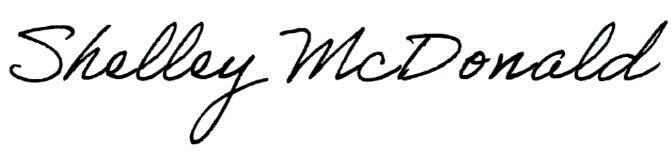 Shelley McDonald